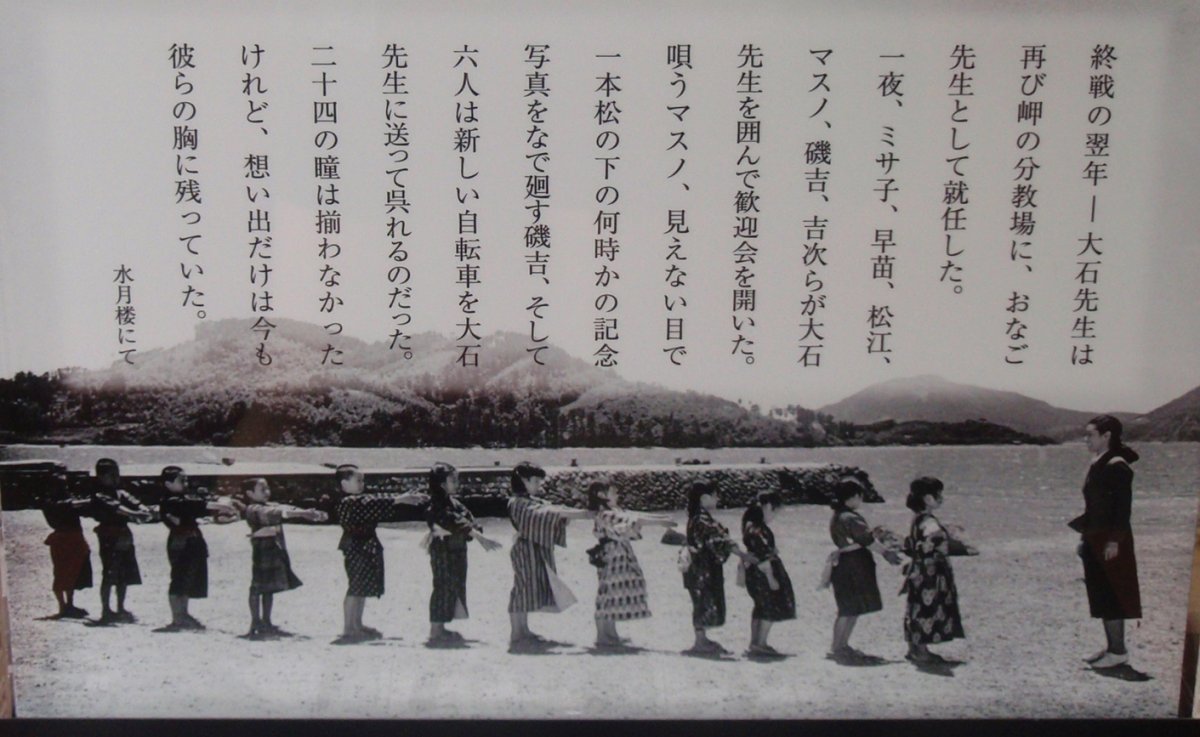 終戦の翌年―大石先生は
再び岬の分教場に、おなご
先生として就任した。
一夜、ミサ子、早苗、松江、
マスノ、磯吉、吉次らが大石
先生を囲んで歓迎会を開いた。
唄うマスノ、見えない目で
一本松の下の何時かの記念
写真をなで廻す磯吉、そして
六人は新しい自転車を大石
先生に送って呉れるのだった。
二十四の瞳は揃わなかった
けれど、想い出だけは今も
彼らの胸に残っていた。
水月楼にて